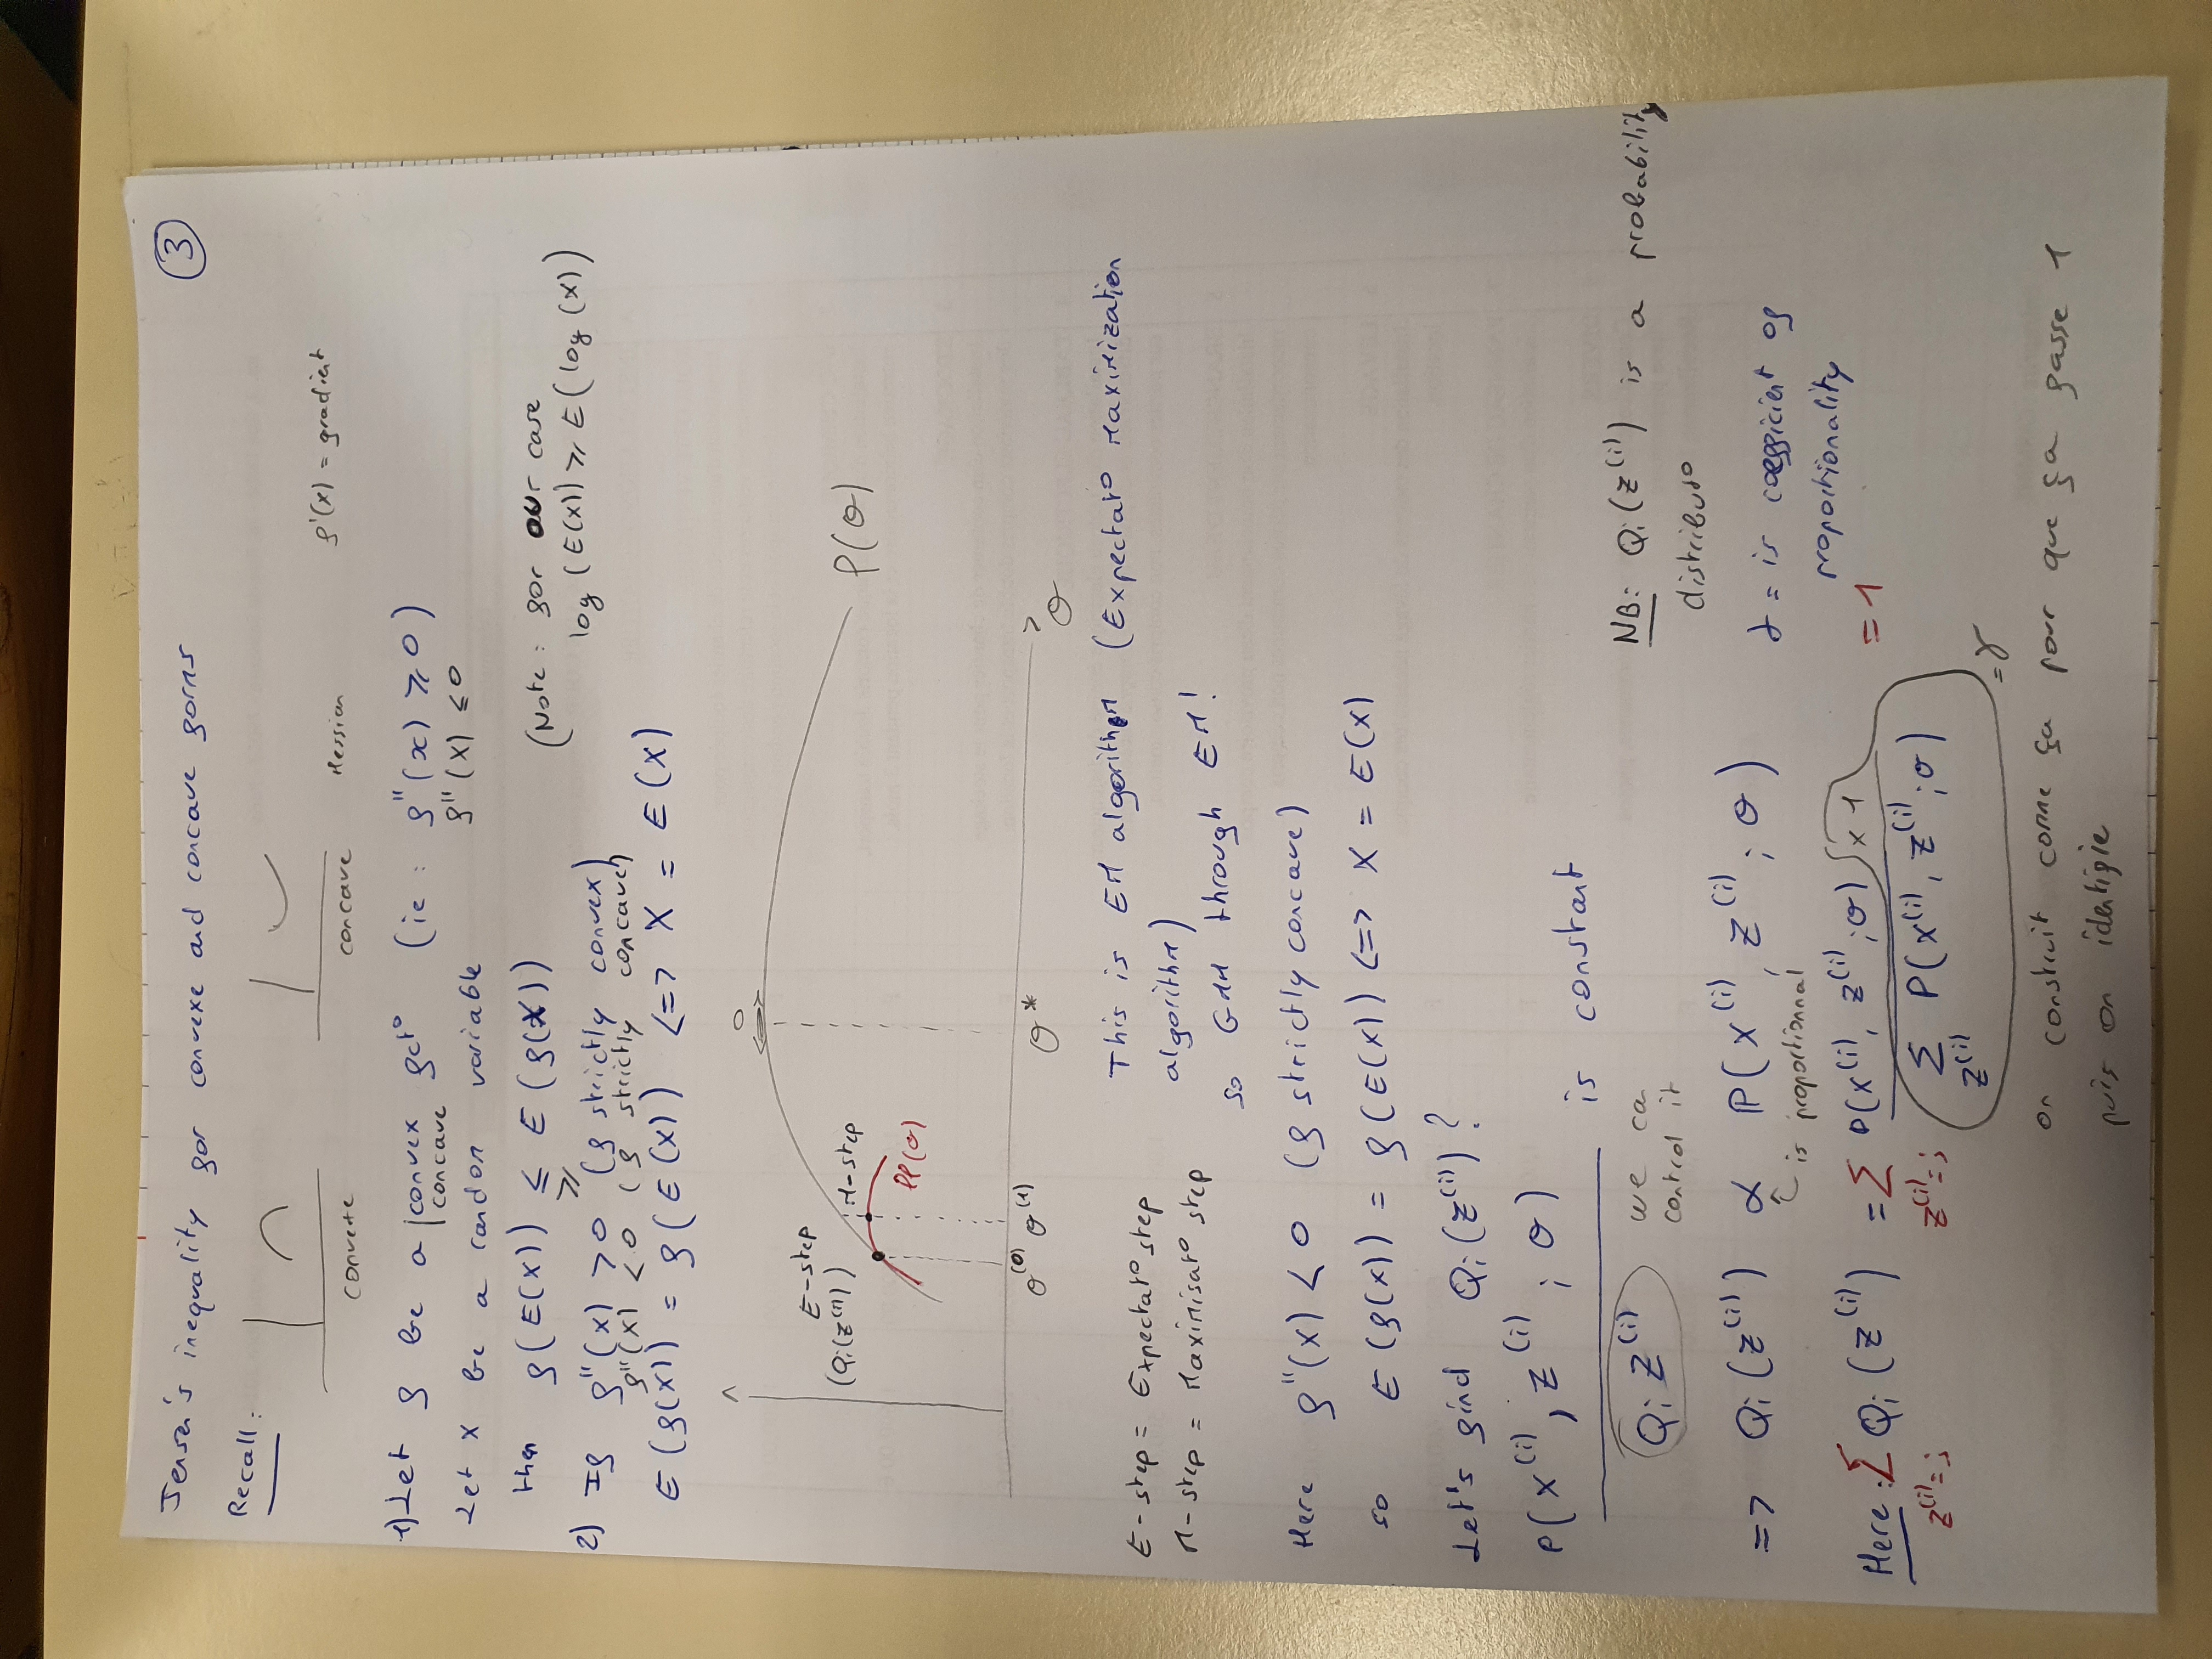 Jensen's inequality for convexe and concave forms
3
Recall:
convexe
concave
Hessian
f'(x) = gradient
1) Let f be a convex fct° (ie : f''(x) ⩾ 0)
concave
f''(x) ⩽ 0
Let X be a random variable
then f(E(X)) ⩽ E(f(X))
⩾
(Note : for our case
log(E(X)) ⩾ E(log(X))
2) If f''(x) > 0 (f strictly convex)
f''(x) < 0 (f strictly concave)
E(f(X)) = f(E(X)) <=> X = E(X)
0
E-step
(Qi(z^(i)))
M-step
l(θ)
ll(θ)
θ^(0) θ^(1)
θ*
θ
E-step = Expectat° step
M-step = Maximisat° step
This is EM algorithm (Expectat° Maximization
algorithm)
so GMM through EM!
Here f''(x) < 0 (f strictly concave)
so E(f(x)) = f(E(x)) <=> X = E(X)
Let's find Qi(z^(i)) ?
P(x^(i), z^(i) ; θ)
is constant
Qi z^(i)
we can
control it
NB: Qi(z^(i)) is a probability
distribut°
=> Qi(z^(i)) ∝ P(x^(i), z^(i) ; θ)
is proportionnal
γ = is coefficient of
proportionality
Here : Σ Qi(z^(i)) = Σ P(x^(i), z^(i) ; θ) x 1 = 1
z^(i)=j z^(i)=j
Σ P(x^(i), z^(i) ; θ)
z^(i)
= γ
on construit comme ça pour que ça fasse 1
puis on identifie